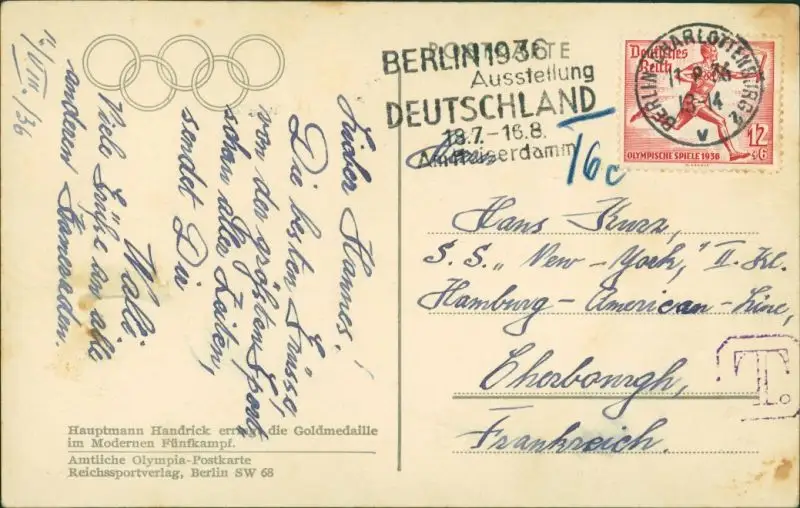 12/VIII./36
Lieber Hannes!
Die besten Grüsse
von der größten Sport
schau aller Zeiten,
sendet Dir
Walli
Viele Grüße an alle
anderen Kameraden.
Hauptmann Handrick erringt die Goldmedaille
im Modernen Fünfkampf.
Amtliche Olympia-Postkarte
Reichssportverlag, Berlin SW 68
POSTKARTE
BERLIN 1936
Ausstellung
DEUTSCHLAND
18.7.-16.8.
Am Kaiserdamm
16c
Deutsches
Reich
12
+6
OLYMPISCHE SPIELE 1936
BERLIN-CHARLOTTENBURG 2
13-14
v
Hans Kurz,
S. S. „New-York," II. Kl.
Hamburg-American-Line,
Cherbourgh,
Frankreich.
T.